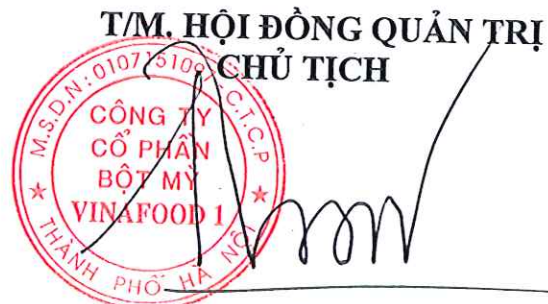 T/M. HỘI ĐỒNG QUẢN TRỊ
CHỦ TỊCH
M.S.D.N: 0107 5109 C.T.C.P
CÔNG TY
CỔ PHẦN
BỘT MỲ
VINAFOOD 1
THÀNH PHỐ HÀ NỘI